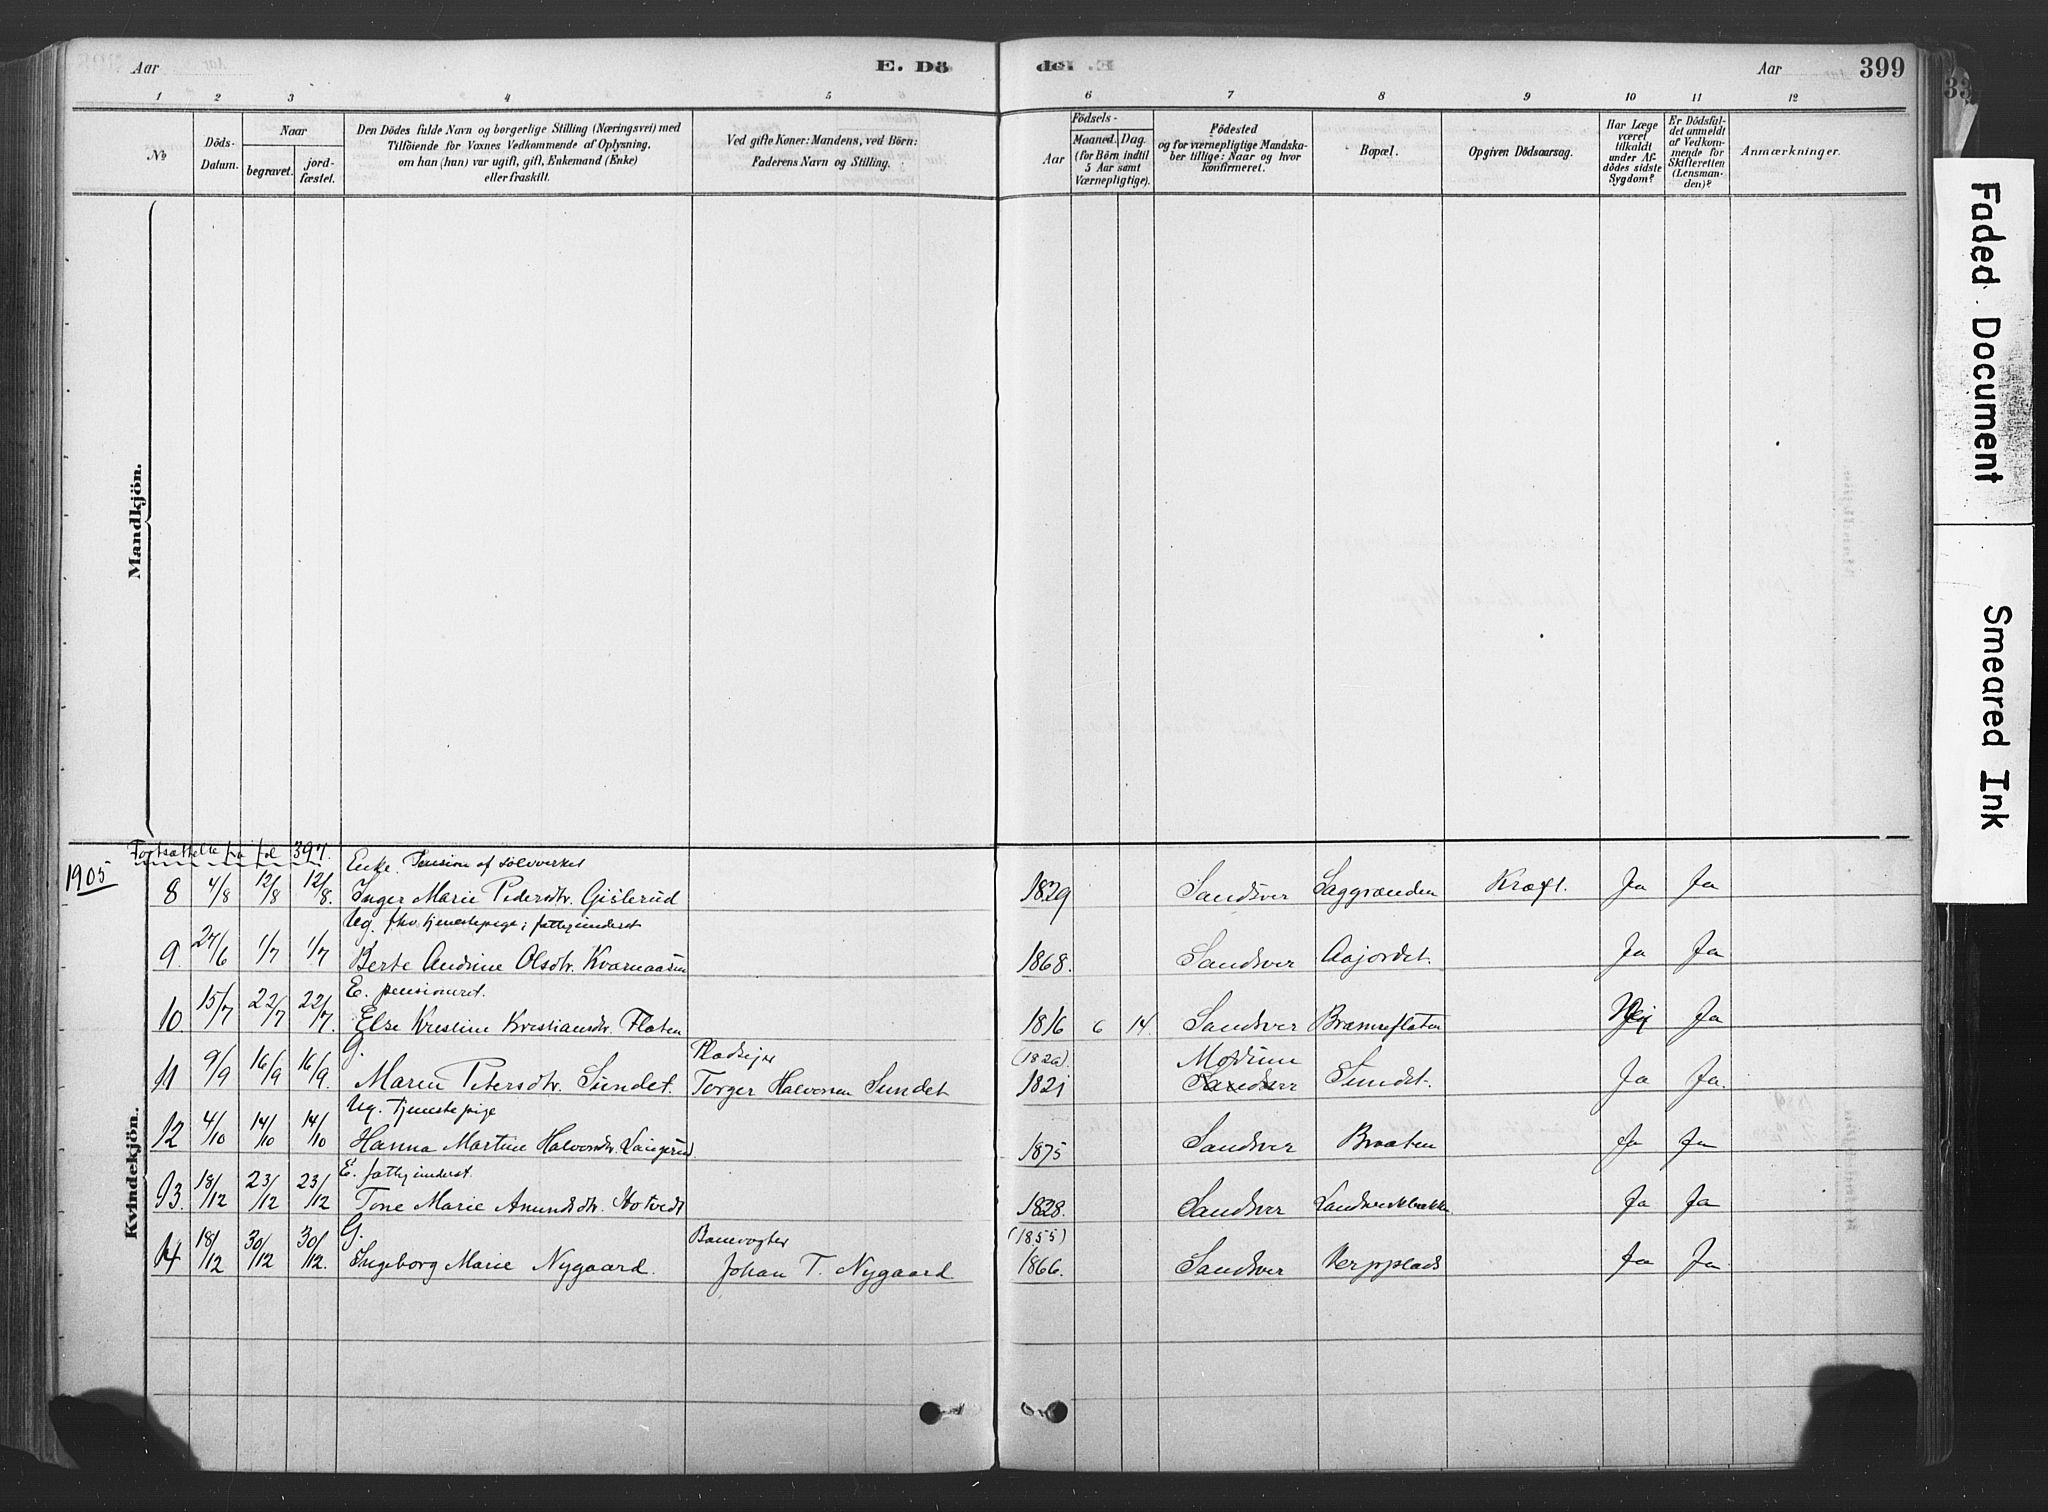 Aar
E. Dö
de.
Aar
399
1 2 3 4 5 6 7 8 9 10 11 12
No
Döds-Datum.
Naar
begravet.
jord-fæstet.
Den Dödes fulde Navn og borgerlige Stilling (Næringsvei) med
Tilföiende for Voxnes Vedkommende af Oplysning,
om han (hun) var ugift, gift, Enkemand (Enke)
eller fraskilt.
Ved gifte Koner: Mandens, ved Börn:
Faderens Navn og Stilling.
Födsels-
Aar
Maaned. Dag.
(for Börn indtil
5 Aar samt
Værnepligtige).
Födested
og for værnepligtige Mandska-
ber tillige: Naar og hvor
konfirmeret.
Bopæl.
Opgiven Dödsaarsag.
Har Læge
været
tilkaldt
under Af-
dödes sidste
Sygdom?
Er Dödsfal-
det anmeldt
af Vedkom-
mende for
Skifteretten
(Lensman-
den)?
Anmærkninger.
Mandkjön.
Kvindekjön.
Fortsættelse fra fol 397.
1905
Enke. Pension af Sölvverket
8 4/8 12/8 12/8. Inger Marie Pedersdtr. Gislerud 1829 Sandsver Laggrænden Kræft. Ja Ja
Ug. fhv tjenestepige; fattigunderst
9. 27/6 1/7 1/7 Berte Andrine Olsdtr. Kvarnaasen 1868. Sandsver Aajordet. Ja Ja
E. pensioneret.
10. 15/7 22/7 22/7. Else Kristine Kristiansdtr. Floten 1816 6 14. Sandsver Bramsefloten Nej Ja
G. Pladseier (1820). Modum
11 9/9 16/9 16/9. Maren Petersdtr. Sundet. Torger Halvorsen Sundet 1821 Sandsver Sundet. Ja Ja.
Ug. Tjenestepige
12 4/10 14/10 14/10 Hanna Martine Halvorsdtr. Langerud 1875 Sandsver Braaten Ja Ja
E. fattigunderst.
13. 18/12 23/12 23/12 Tone Marie Amundsdtr. Hotvedt 1828. Sandsver Landsverkbakken Ja Ja
G. Banevogter (1855)
14 18/12 30/12 30/12. Ingeborg Marie Nygaard. Johan T. Nygaard 1866. Sandsver Verpplads Ja Ja
Faded Document
Smeared Ink